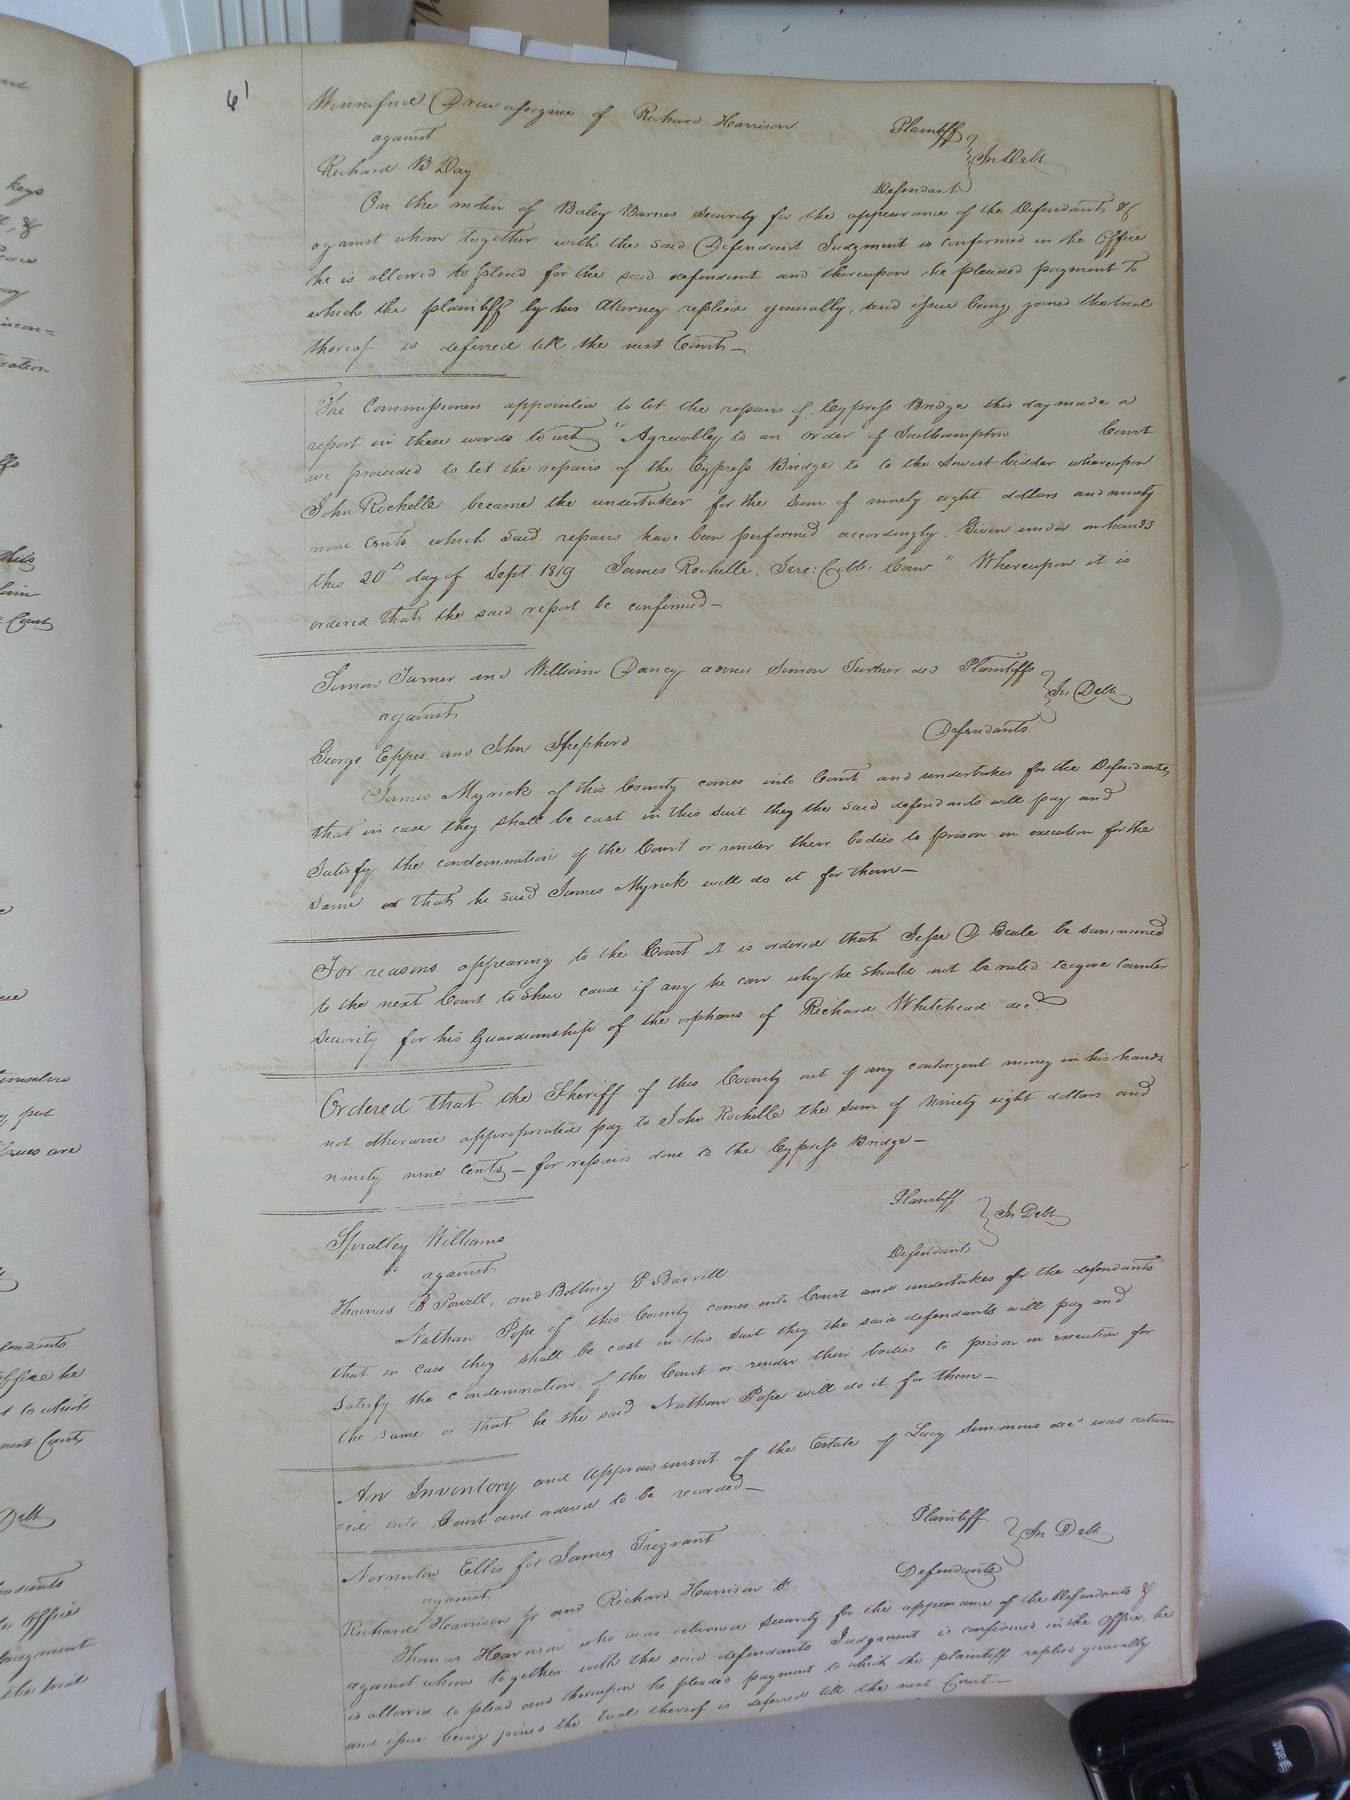 61
Winnifred Drew assignee of Richard Harrison Plaintiff
against } In Debt
Richard B Day Defendant
On the motion of Baley Barnes security for the appearance of the Defendants &
against whom together with the said Defendant Judgment is confirmed in the Office
he is allowed to plead for the said defendent and thereupon he pleaded payment To
which the plaintiff by his Attorney replied generally, and issue being joined the trial
thereof is deferred till the next Court—
The Commissioners appointed to let the repairs of Cypress Bridge this day made a
report in these words to wit "Agreeably to an order of Southampton Court
we proceeded to let the repairs of the Cypress Bridge to to the lowest bidder whereupon
John Rochelle became the undertaker for the sum of ninety eight dollars and ninety
nine cents which said repairs have been performed accordingly. Given under our hands
this 20th day of Sept. 1819 James Rochelle. Whereupon it is
ordered that the said report be confirmed—
Simon Turner and William Dancy admrs Simon Turner dec Plaintiffs
against } In Debt
George Eppes and John Shepherd Defendants
James Myrick of this County comes into Court and undertakes for the Defendants
that in case they shall be cast in this suit they the said defendants will pay and
satisfy the condemnation of the Court or render their bodies to prison in execution for the
same or that he said James Myrick will do it for them—
For reasons appearing to the Court it is ordered that Jesse D Beale be summoned
to the next Court to shew cause if any he can why he should not be ruled to give counter
security for his guardianship of the orphans of Richard Whitehead decd
Ordered that the Sheriff of this County out of any contingent money in his hands
not otherwise appropriated pay to John Rochelle the sum of ninety eight dollars and
ninety nine cents—for repairs done to the Cypress Bridge—
Spratley Williams Plaintiff
against } In Debt
Thomas B Powell, and Bolling P Barrett Defendants
Nathan Pope of this County comes into Court and undertakes for the defendants
that in case they shall be cast in this suit they the said defendants will pay and
satisfy the condemnation of the Court or render their bodies to prison in execution for
the same or that he the said Nathan Pope will do it for them—
An Inventory and appraisement of the Estate of Lucy Simmons decd was return
=ed into Court and ordered to be recorded—
Ellis for James Plaintiff
against } In Debt
Richard Harrison Jr and Richard Harrison Defendants
Thomas Harrison who was returned security for the appearance of the Defendants &
against whom together with the said defendants Judgment is confirmed in the Office, he
is allowed to plead and thereupon he pleaded payment to which the plaintiff replied generally
and issue being joined the trial thereof is deferred till the next Court—